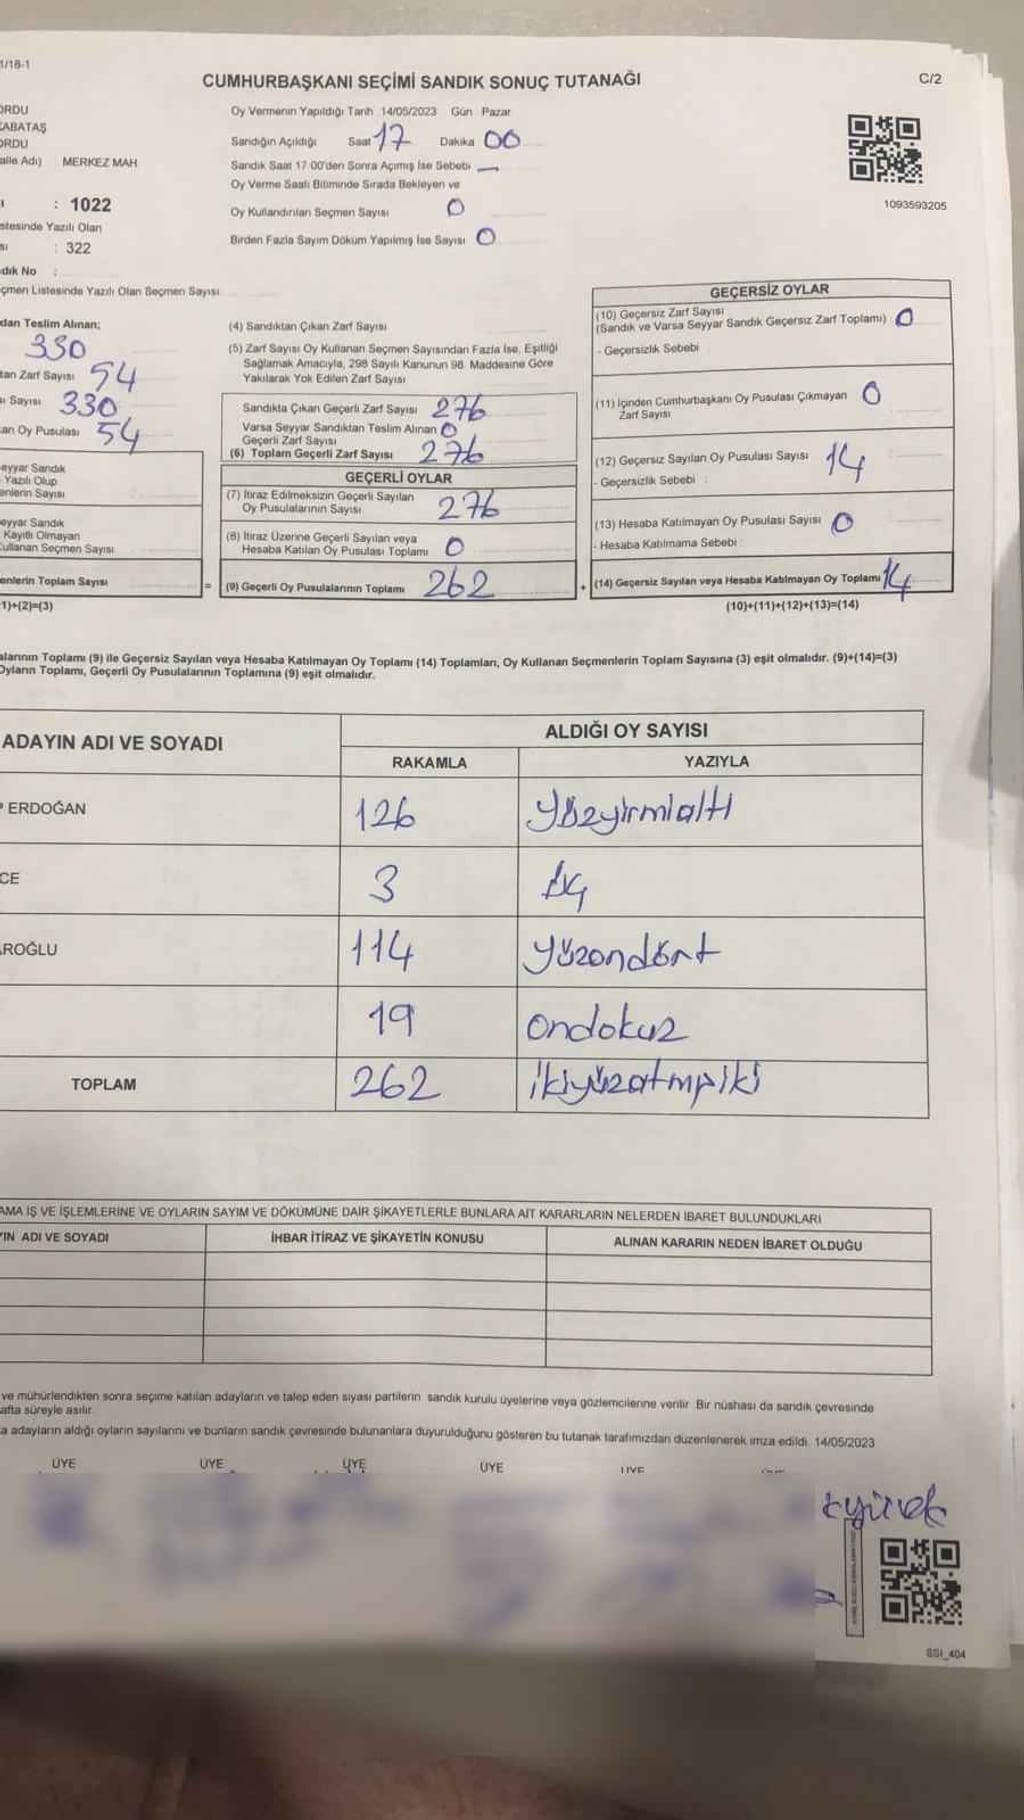 1/18-1
CUMHURBAŞKANI SEÇİMİ SANDIK SONUÇ TUTANAĞI
C/2
ORDU
KABATAŞ
ORDU
alle Adı) MERKEZ MAH
: 1022
stesinde Yazılı Olan
: 322
dık No :
çmen Listesinde Yazılı Olan Seçmen Sayısı
Oy Vermenin Yapıldığı Tarih 14/05/2023 Gün Pazar
Sandığın Açıldığı Saat 17 Dakika 00
Sandık Saat 17:00'den Sonra Açımış İse Sebebi —
Oy Verme Saati Bitiminde Sırada Bekleyen ve
Oy Kullandırılan Seçmen Sayısı 0
Birden Fazla Sayım Döküm Yapılmış İse Sayısı 0
1093593205
dan Teslim Alınan;
330
tan Zarf Sayısı 54
ı Sayısı 330
an Oy Pusulası 54
eyyar Sandık
Yazılı Olup
enlerin Sayısı
eyyar Sandık
Kayıtlı Olmayan
Kullanan Seçmen Sayısı
enlerin Toplam Sayısı
1)+(2)=(3)
(4) Sandıktan Çıkan Zarf Sayısı
(5) Zarf Sayısı Oy Kullanan Seçmen Sayısından Fazla İse, Eşitliği
Sağlamak Amacıyla, 298 Sayılı Kanunun 98. Maddesine Göre
Yakılarak Yok Edilen Zarf Sayısı
Sandıkta Çıkan Geçerli Zarf Sayısı 276
Varsa Seyyar Sandıktan Teslim Alınan 0
Geçerli Zarf Sayısı
(6) Toplam Geçerli Zarf Sayısı 276
GEÇERLİ OYLAR
(7) İtiraz Edilmeksizin Geçerli Sayılan
Oy Pusulalarının Sayısı 276
(8) İtiraz Üzerine Geçerli Sayılan veya
Hesaba Katılan Oy Pusulası Toplamı 0
= (9) Geçerli Oy Pusulalarının Toplamı 262
GEÇERSİZ OYLAR
(10) Geçersiz Zarf Sayısı
(Sandık ve Varsa Seyyar Sandık Geçersiz Zarf Toplamı) : 0
- Geçersizlik Sebebi
(11) İçinden Cumhurbaşkanı Oy Pusulası Çıkmayan 0
Zarf Sayısı
(12) Geçersiz Sayılan Oy Pusulası Sayısı 14
- Geçersizlik Sebebi :
(13) Hesaba Katılmayan Oy Pusulası Sayısı 0
- Hesaba Katılmama Sebebi :
+ (14) Geçersiz Sayılan veya Hesaba Katılmayan Oy Toplamı 14
(10)+(11)+(12)+(13)=(14)
alarının Toplamı (9) ile Geçersiz Sayılan veya Hesaba Katılmayan Oy Toplamı (14) Toplamları, Oy Kullanan Seçmenlerin Toplam Sayısına (3) eşit olmalıdır. (9)+(14)=(3)
Oyların Toplamı, Geçerli Oy Pusulalarının Toplamına (9) eşit olmalıdır.
ADAYIN ADI VE SOYADI
ALDIĞI OY SAYISI
RAKAMLA YAZIYLA
ERDOĞAN 126 Yüzyirmialtı
CE 3 üç
AROĞLU 114 yüzondört
19 ondokuz
TOPLAM 262 ikiyüzatmıpiki
AMA İŞ VE İŞLEMLERİNE VE OYLARIN SAYIM VE DÖKÜMÜNE DAİR ŞİKAYETLERLE BUNLARA AİT KARARLARIN NELERDEN İBARET BULUNDUKLARI
IN ADI VE SOYADI İHBAR İTİRAZ VE ŞİKAYETİN KONUSU ALINAN KARARIN NEDEN İBARET OLDUĞU
ve mühürlendikten sonra seçime katılan adayların ve talep eden siyasi partilerin sandık kurulu üyelerine veya gözlemcilerine verilir. Bir nüshası da sandık çevresinde
afta süreyle asılır.
a adayların aldığı oyların sayılarını ve bunların sandık çevresinde bulunanlara duyurulduğunu gösteren bu tutanak tarafımızdan düzenlenerek imza edildi. 14/05/2023
ÜYE ÜYE ÜYE ÜYE ÜYE
SSI_404